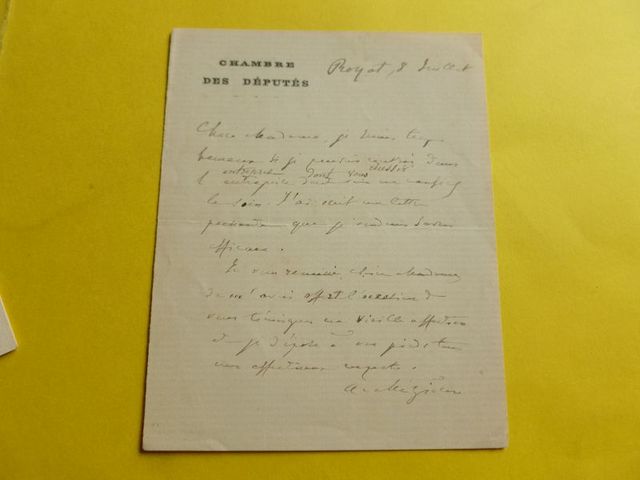 CHAMBRE
DES DÉPUTÉS
Royat, 8 Juillet
Chère Madame, je serais trop
heureux si je pouvais contribuer dans
entreprise dont vous
l'entreprise dont vous me confiez
le soin. J'ai écrit une lettre
pressante que je voudrais savoir
efficace.
Je vous remercie, chère Madame,
de m'avoir offert l'occasion de
vous témoigner ma vieille affection
et je dépose à vos pieds tous
mes affectueux respects.
A. Mézières